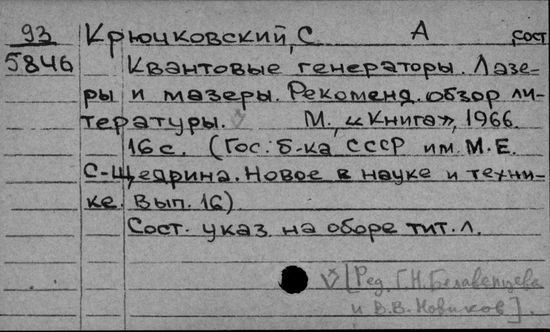 93 Крючковский, С А сост
5846 Квантовые генераторы. Лазе-
ры и мазеры. Рекоменд. обзор ли-
тературы. М., «Книга», 1966.
16 с. (Гос. б-ка СССР им. М.Е.
С-Щедрина. Новое в науке и техни-
ке. Вып. 16)
Сост. указ. на обороте тит. л.
[Ред. Г.Н. Белавенцева
и В.В. Новиков]